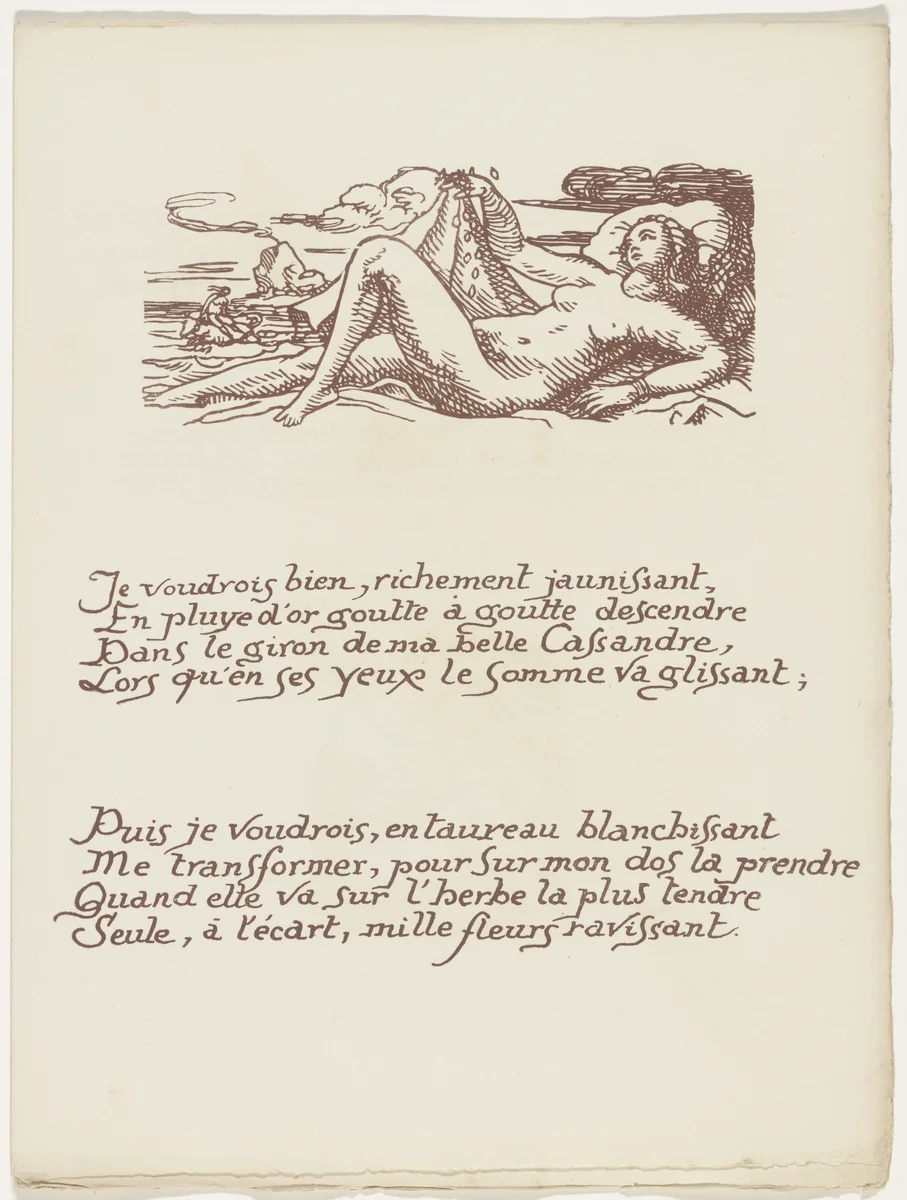 Je voudrois bien, richement jaunissant,
En pluye d'or goutte à goutte descendre
Dans le giron de ma belle Cassandre,
Lors qu'en ses yeux le somme va glissant;
Puis je voudrois, en taureau blanchissant
Me transformer, pour sur mon dos la prendre
Quand elle va sur l'herbe la plus tendre
Seule, à l'écart, mille fleurs ravissant.